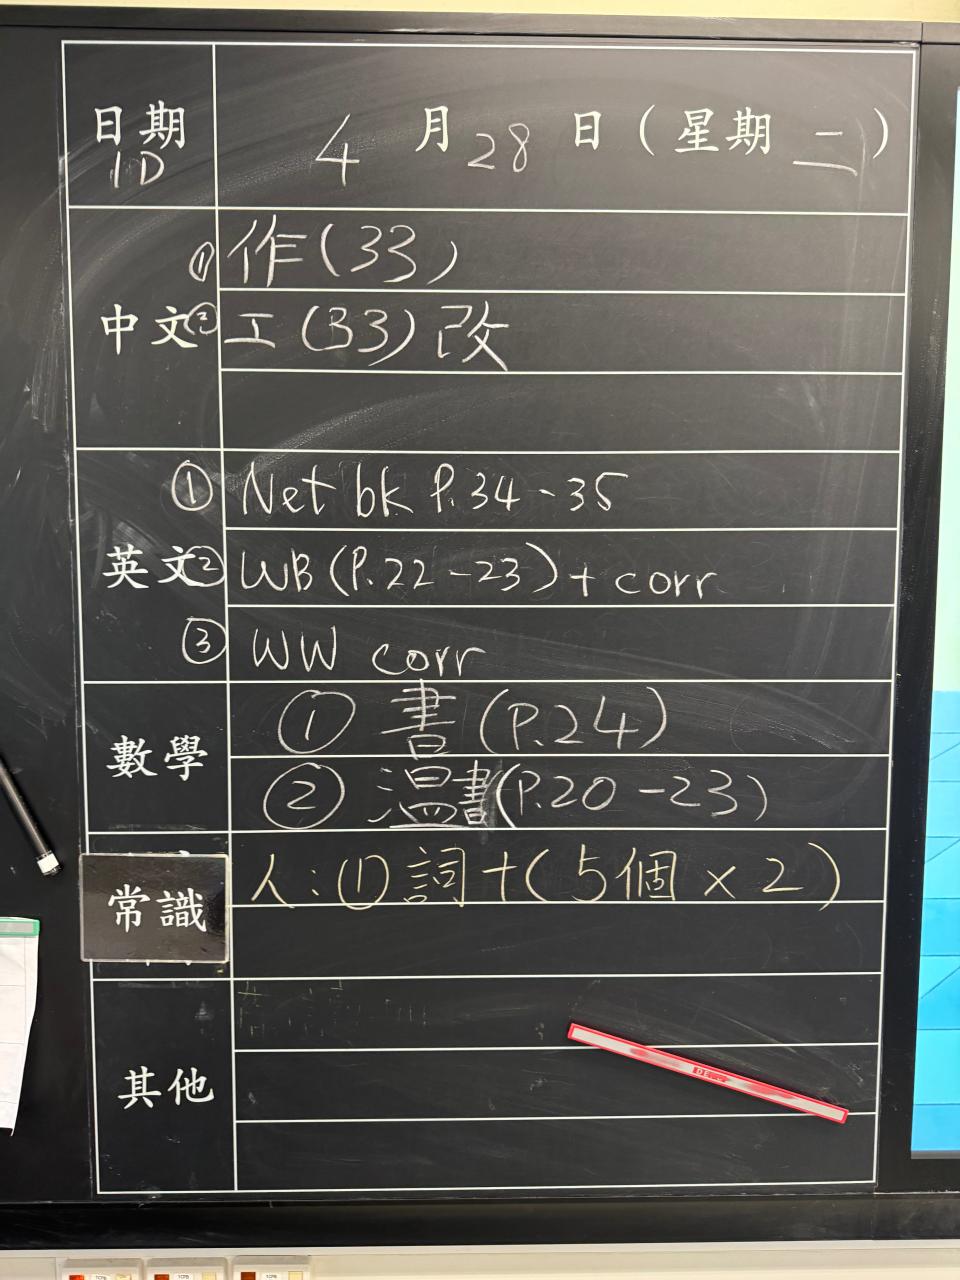 日期 4 月 28 日 ( 星期 二 )
1D
① 作(33)
中文 ② 工(33) 改
① Net bk P.34-35
英文 ② WB (P.22-23) + corr
③ WW corr
① 書 (P.24)
數學
② 溫書(P.20-23)
人:① 詞十(5個×2)
常識
其他